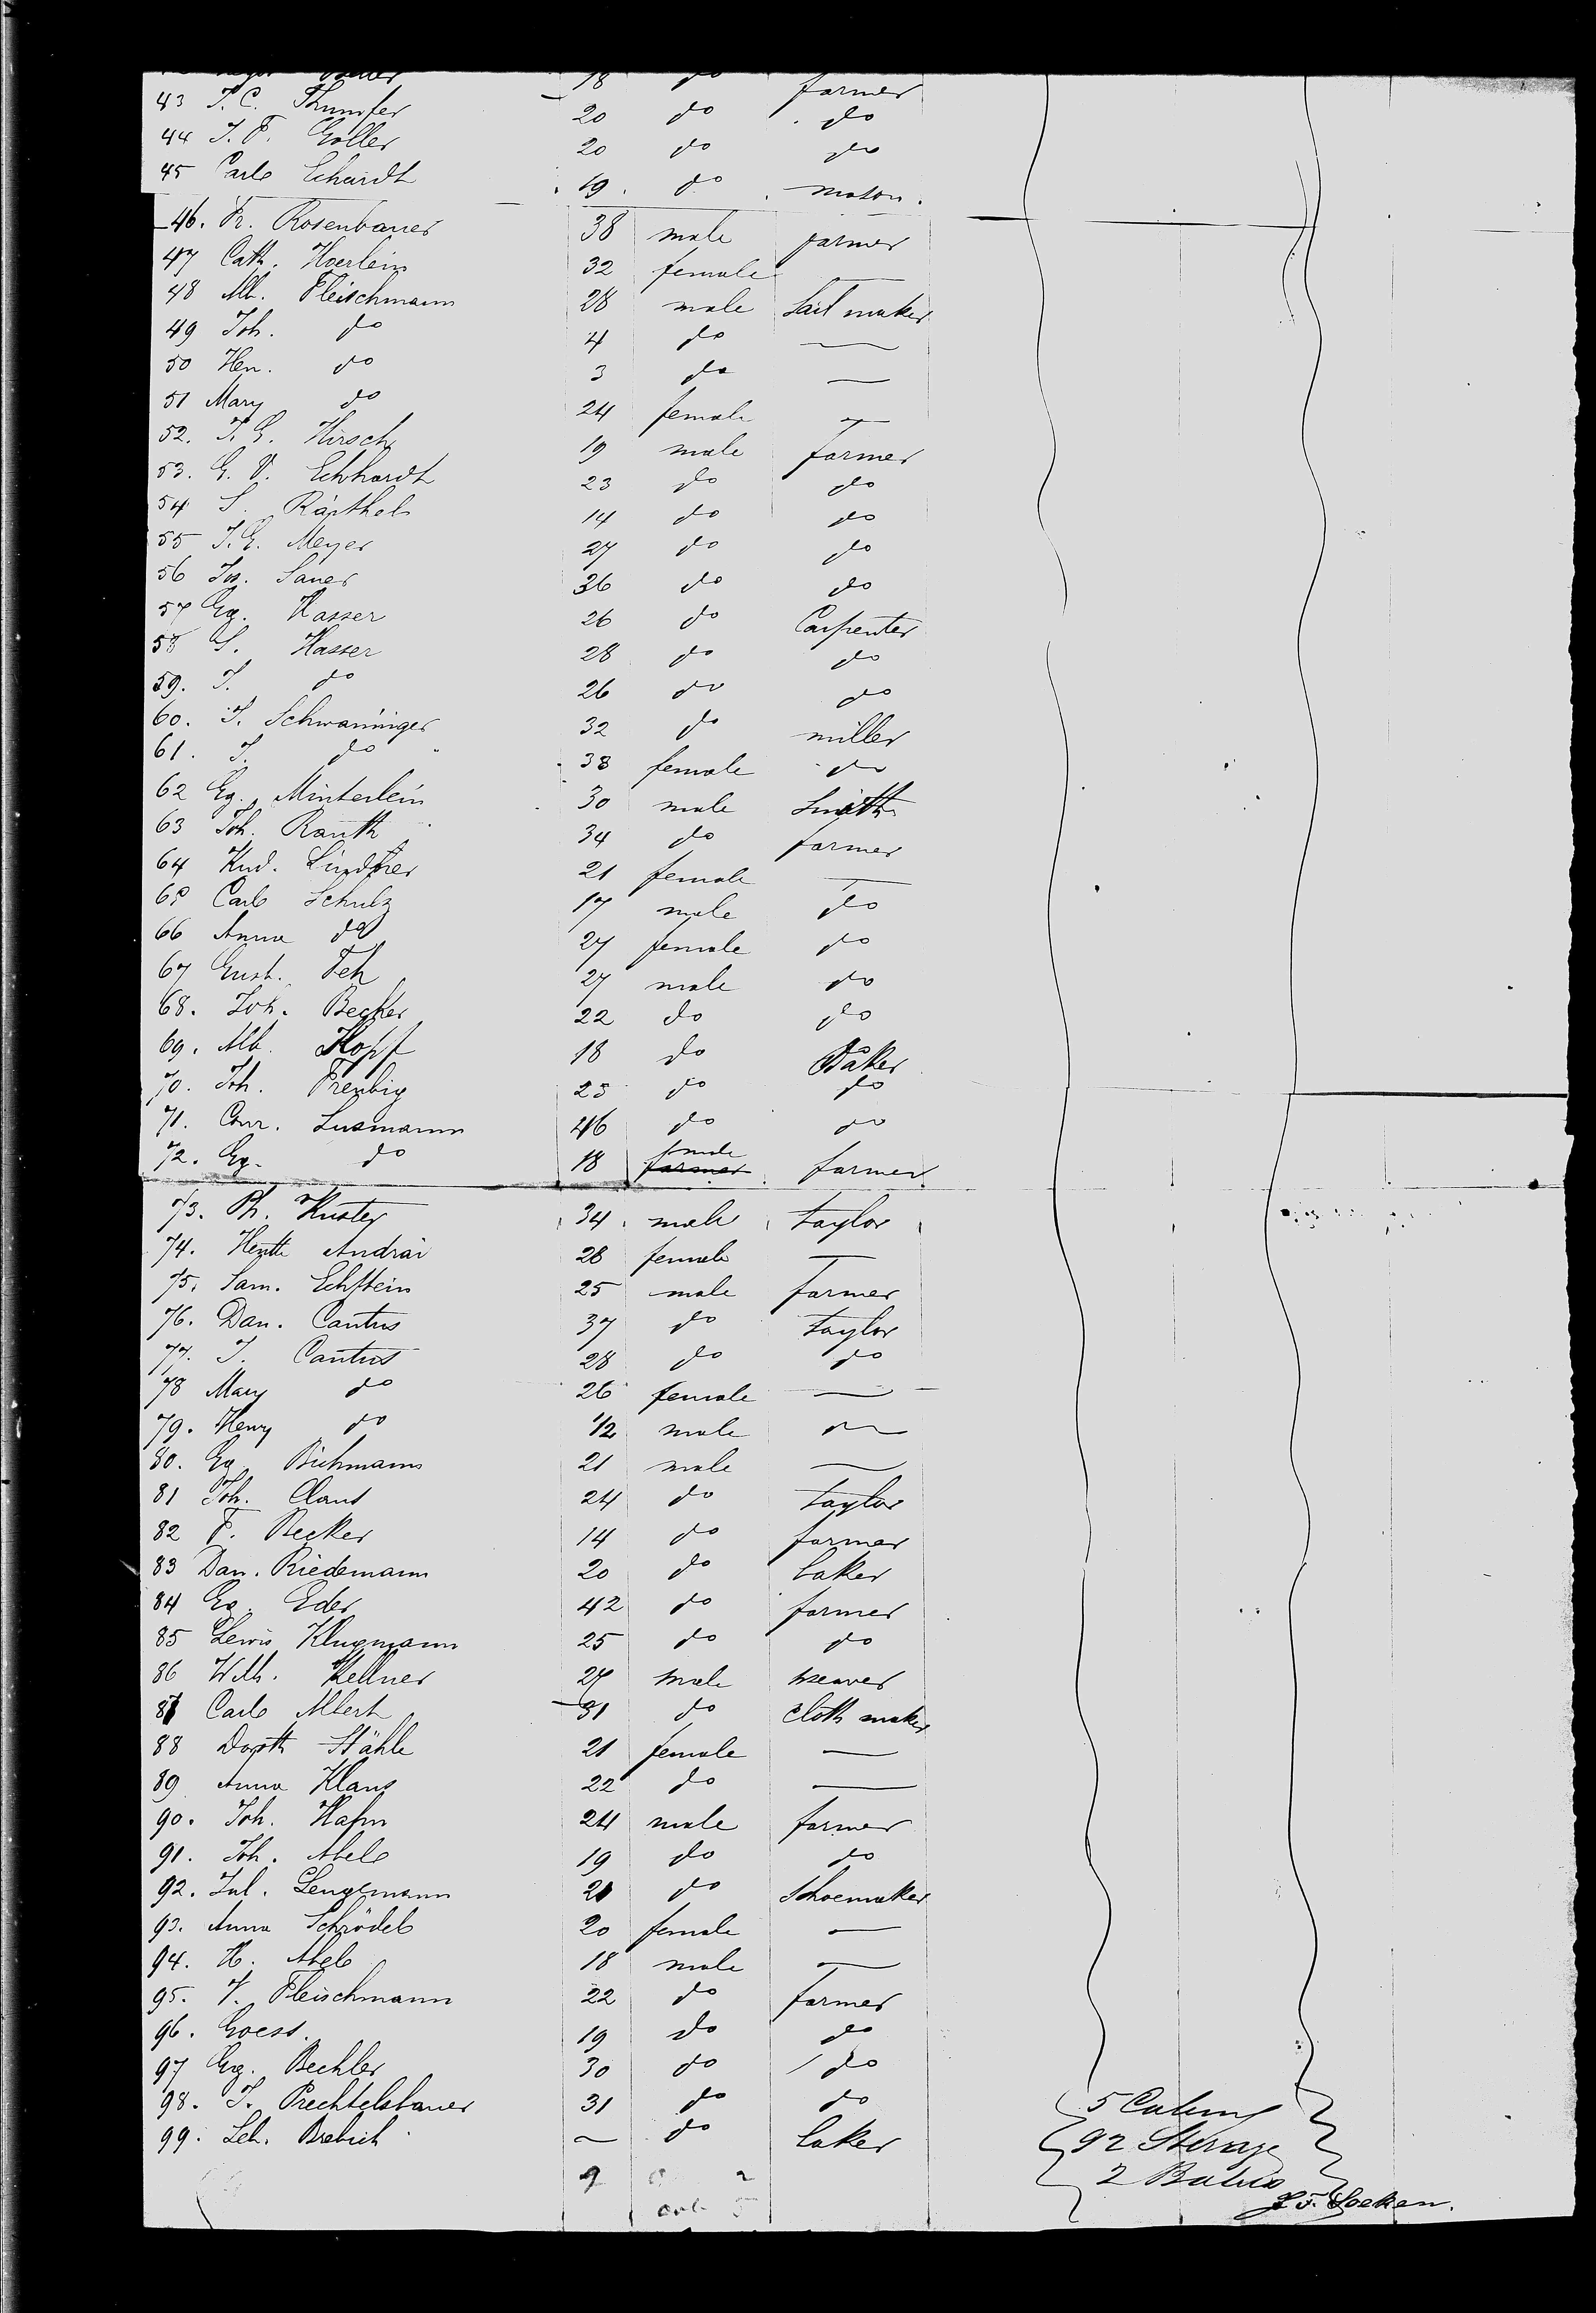 18 do farmer
43 J. C. Thumfer 20 do do
44 J. F. Goller 20 do do
45 Carl Echardt 19. do mason.
46. Fr. Rosenbauer 38 male farmer
47 Cath. Hoerlein 32 female —
48 Alb. Fleischmann 28 male Sail maker
49 Joh. do 4 do —
50 Hen. do 3 do —
51 Mary do 24 female —
52. J. G. Hirsch 19 male farmer
53. G. V. Echhardt 23 do do
54 S. Räpthel 14 do do
55 J. G. Meyer 27 do do
56 Jos. Sauer 36 do do
57 Gg. Hasser 26 do Carpenter
58 S. Hasser 28 do do
59. J. do 26 do do
60. J. Schwaninger 32 do miller
61. J. do 38 female do
62 Gg. Minterlein 30 male Smith
63 Joh. Rauth 34 do farmer
64 Kud. Lindtner 21 female —
65 Carl Schulz 17 male do
66 Anna do 27 female do
67 Gust. Feh 27 male do
68. Joh. Becker 22 do do
69. Alb. Hopf 18 do Baker
70. Joh. Frenbig 25 do do
71. Conr. Lusmann 46 do do
72. Gg. do 18 female farmer farmer
73. Ph. Kuster 34. male taylor
74. Hentt Andrai 28 female —
75. Sam. Echstein 25 male farmer
76. Dan. Cantus 37 do taylor
77. J. Cantus 28 do do
78 Mary do 26 female —
79. Henry do 1/2 male —
80. Gg. Bichmann 21 male —
81 Joh. Claus 24 do taylor
82 F. Becker 14 do farmer
83 Dan. Riedemann 20 do baker
84 Gg. Eder 42 do farmer
85 Lewis Klugmann 25 do do
86 Wilh. Kellner 27 male weaver
87 Carl Albert 31 do cloth maker
88 Doroth Stähle 21 female —
89 Anna Klaus 22 do —
90. Joh. Hahn 24 male farmer
91. Joh. Abele 19 do do
92. Jul. Lengemann 21 do Shoemaker
93. Anna Schrödel 20 female —
94. H. Abele 18 male —
95. V. Fleischmann 22 do farmer
96. Goess. 19 do do
97 Gg. Bechler 30 do do
98. J. Prechtelsbauer 31 do do
99. Leh. Brebich — do baker
5 Cabins
92 Sterage
2 Babies
J. F. Soeken.